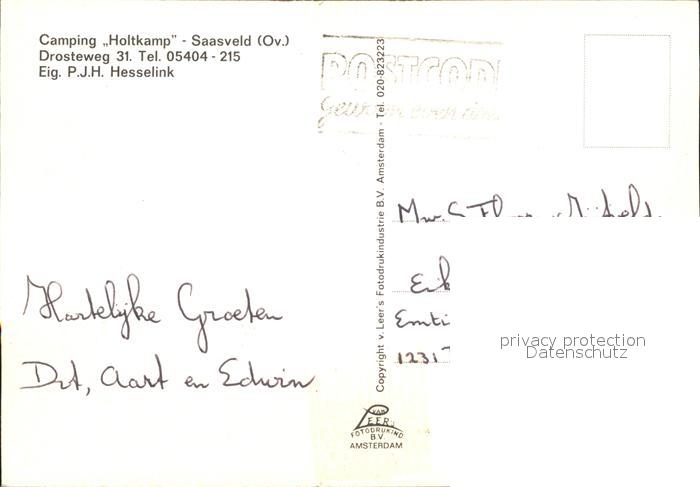 Camping „Holtkamp” - Saasveld (Ov.)
Drosteweg 31. Tel. 05404 - 215
Eig. P.J.H. Hesselink
POSTCOD
Hartelijke Groeten
Dit, Aart en Edwin
Copyright v. Leer's Fotodrukindustrie B.V. Amsterdam - Tel. 020-823223
Mw.
Erik
1231
VAN
LEER'S
FOTODRUKIND
B.V.
AMSTERDAM
privacy protection
Datenschutz